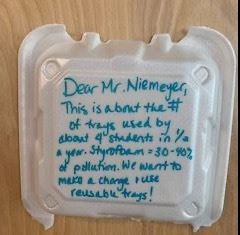 Dear Mr. Niemeyer,
This is about the #
of trays used by
about 4 students in 1/2
a year. Styrofoam = 30-40%
of pollution. We want to
make a change & use
reusable trays!